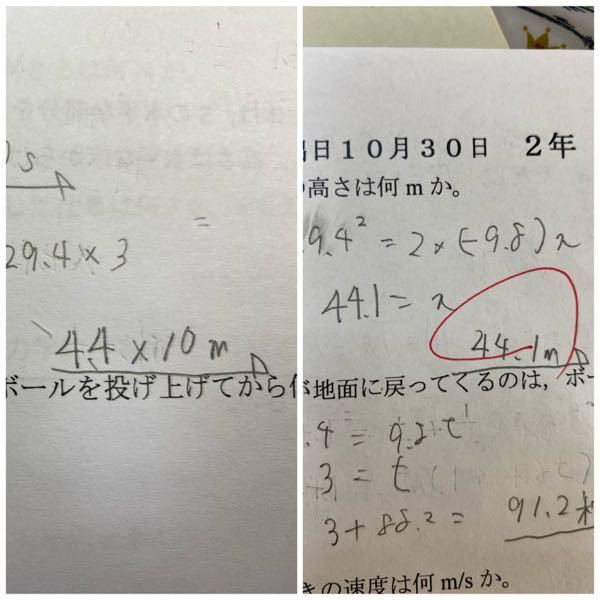 s
=
29.4 × 3
4.4 × 10 m
ボールを投げ上げてから
出日10月30日 2年
の高さは何mか。
9.4² = 2 × (-9.8) x
44.1 = x
44.1m
地面に戻ってくるのは，ボー
.4 = 9.8t
3 = t
3 + 88.2 = 91.2秒
きの速度は何m/sか。